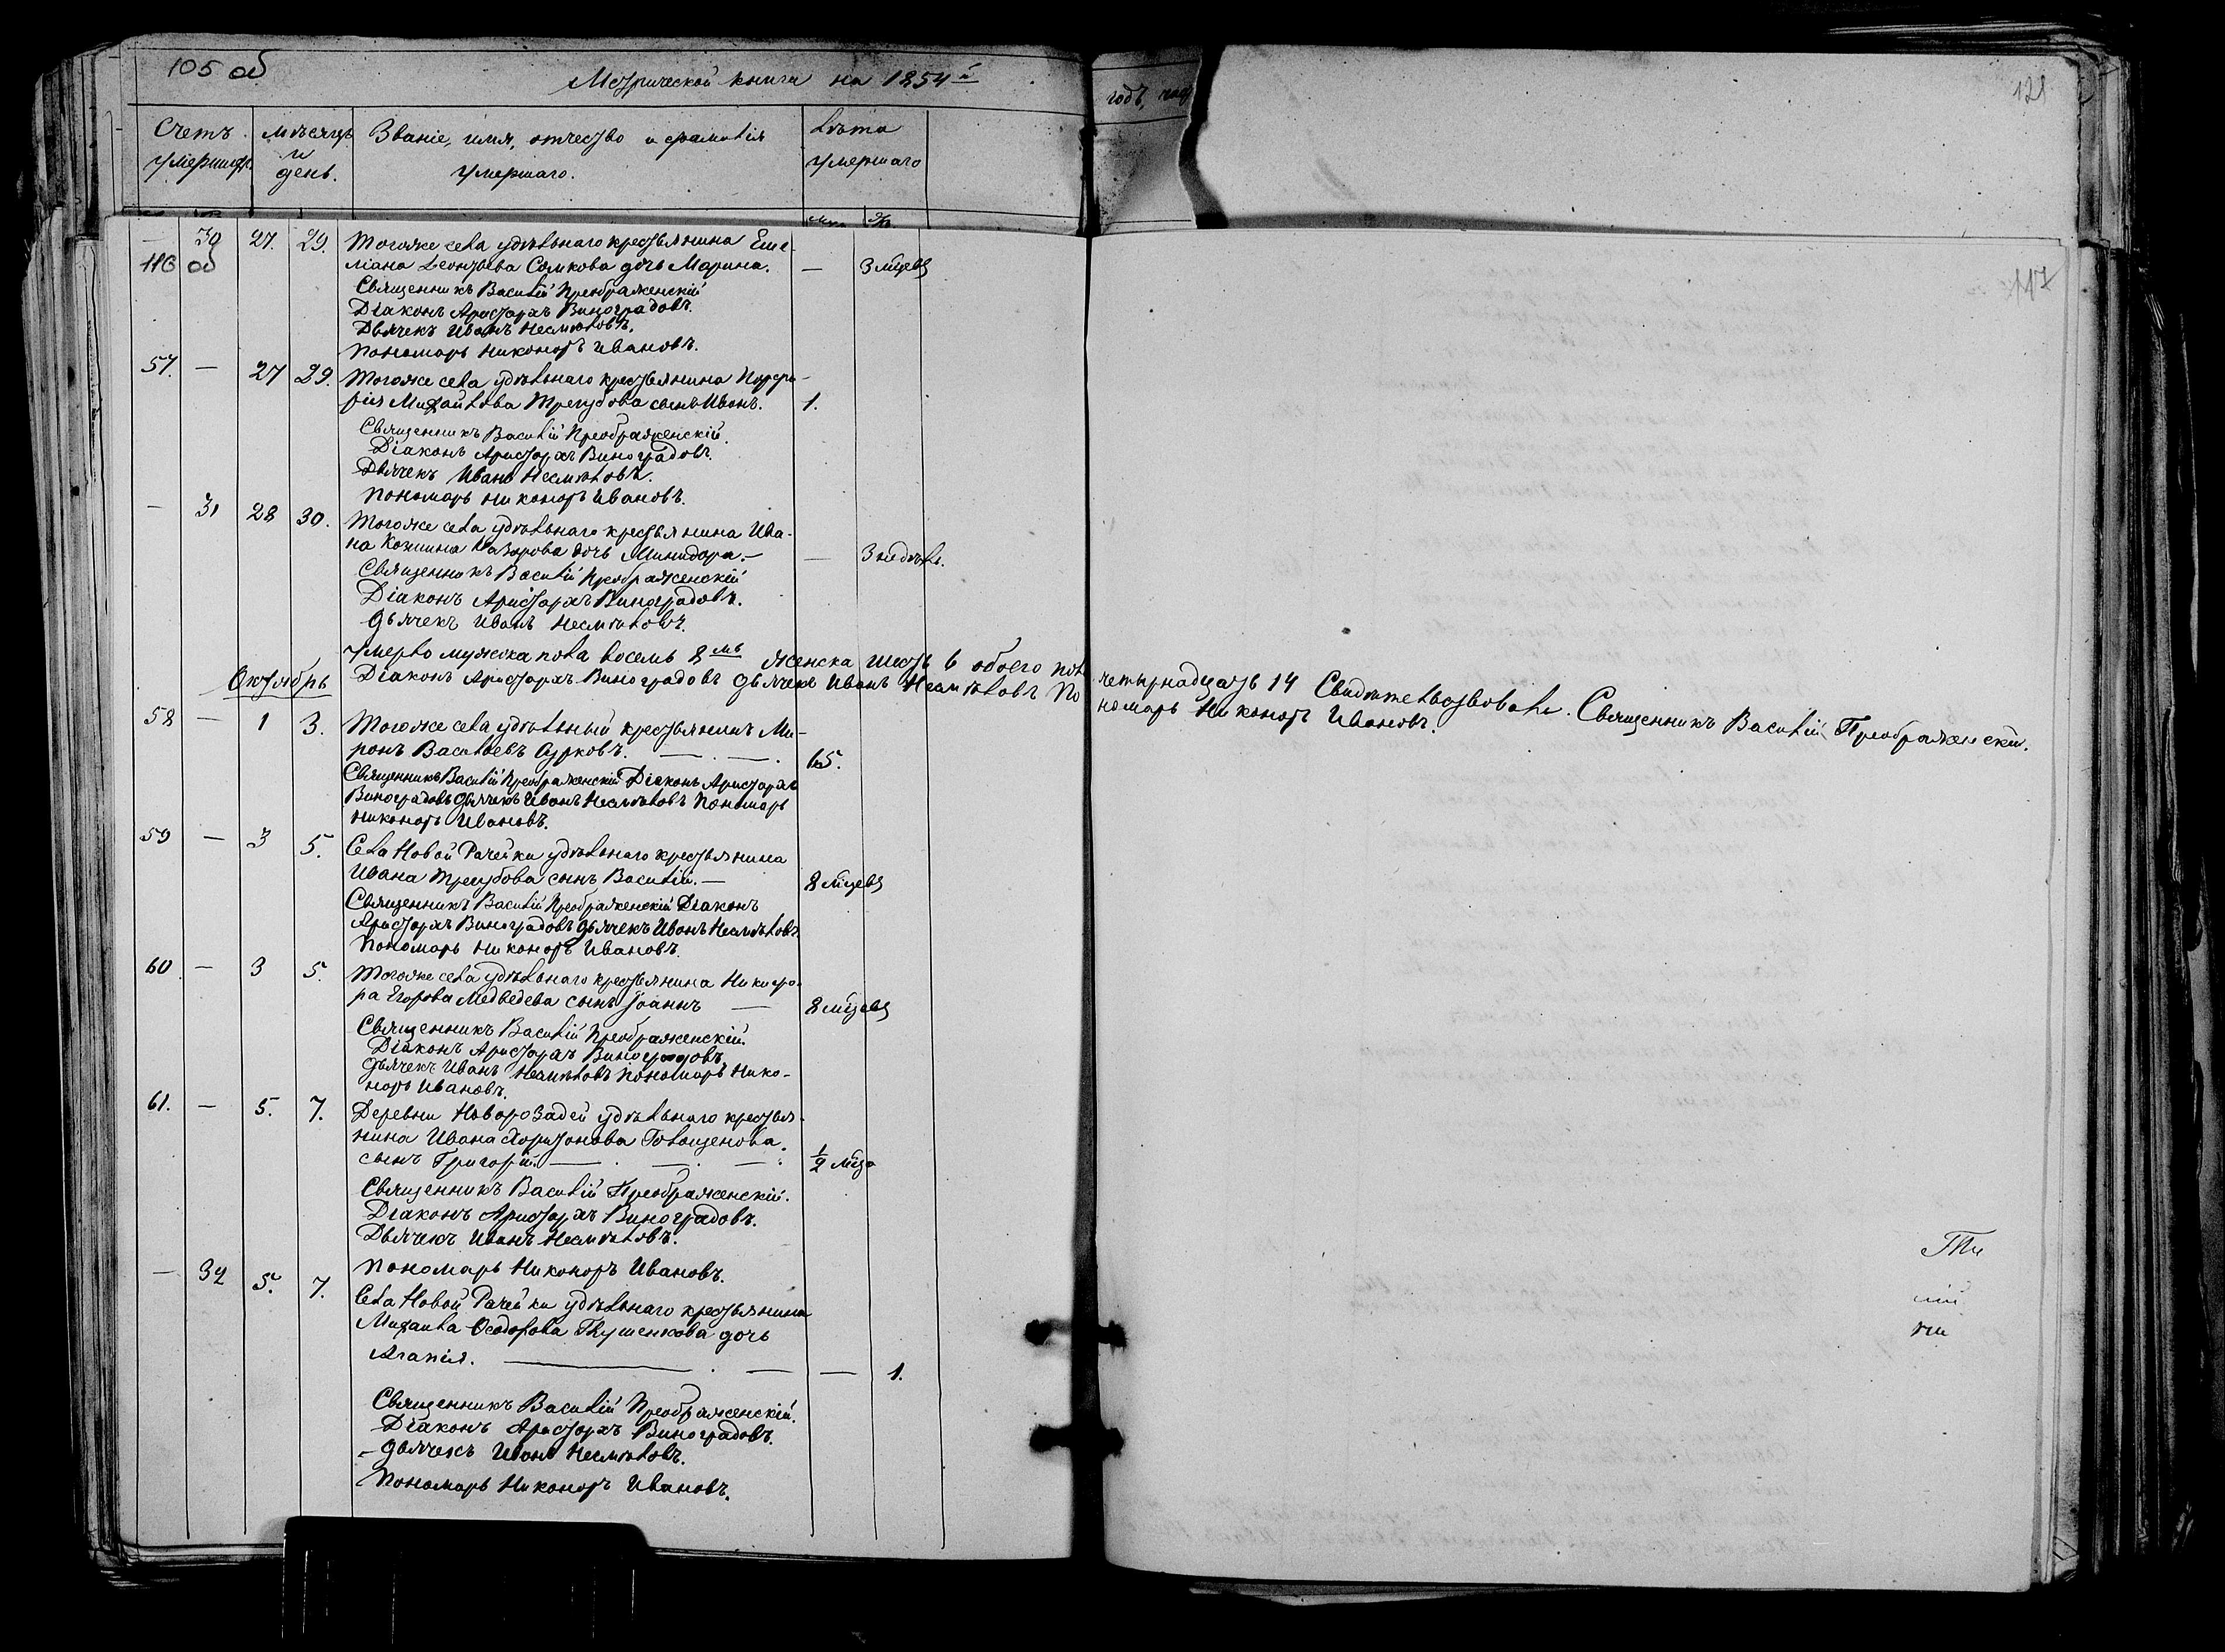 105 об
Метрической книги на 1854й
годъ, час
121
Счетъ умершихъ.
Мѣсяцъ и день.
Званіе, имя, отчество и фамилія умершаго.
Лѣта умершаго
117
— 30 27. 29. Тогоже села удѣльнаго крестьянина Еме-
116 об ліана Леонтьева Сомкова дочь Марина. — 3 мѣцевъ
Священникъ Василій Преображенскій
Діаконъ Аристархъ Виноградовъ.
Дьячекъ Иванъ Несмѣловъ.
Пономарь Никоноръ Ивановъ.
57. — 27 29. Тогоже села удѣльнаго крестьянина Порфи-
рія Михайлова Трегубова сынъ Иванъ. 1.
Священникъ Василій Преображенскій.
Діаконъ Аристархъ Виноградовъ.
Дьячекъ Иванъ Несмѣловъ.
Пономарь Никоноръ Ивановъ.
— 31 28 30. Тогоже села удѣльнаго крестьянина Ива-
на Козмина Назарова дочь Минидора. — — 3 недѣль.
Священникъ Василій Преображенскій
Діаконъ Аристархъ Виноградовъ.
Дьячекъ Иванъ Несмѣловъ.
Умерло мужска пола восемь 8мь женска шесть 6 обоего пол четырнадцать 14 Свидѣтельствовали. Священникъ Василій Преображенскій.
Діаконъ Аристархъ Виноградовъ Дьячекъ Иванъ Несмѣловъ По номарь Никоноръ Ивановъ.
Октябрь
58 — 1 3. Тогоже села удѣльный крестьянинъ Ми-
ронъ Васильевъ Сурковъ. — . — . 65.
Священникъ Василій Преображенскій Діаконъ Аристархъ
Виноградовъ Дьячекъ Иванъ Несмѣловъ Пономарь
Никоноръ Ивановъ.
59 — 3 5. Села Новой Рачейки удѣльнаго крестьянина
Ивана Трегубова сынъ Василій. — 8 мѣцевъ
Священникъ Василій Преображенскій Діаконъ
Аристархъ Виноградовъ Дьячекъ Иванъ Несмѣловъ
Пономарь Никоноръ Ивановъ.
60 — 3 5. Тогоже села удѣльнаго крестьянина Никифо-
ра Егорова Медведева сынъ Іоаннъ — 8 мѣцевъ
Священникъ Василій Преображенскій.
Діаконъ Аристархъ Виноградовъ.
Дьячекъ Иванъ Несмѣловъ Пономарь Нико-
норъ Ивановъ.
61. — 5. 7. Деревни Новорозадей удѣльнаго крестья-
нина Ивана Харитонова Голощенова.
сынъ Григорій. — . — . — . ½ мѣца
Священникъ Василій Преображенскій.
Діаконъ Аристархъ Виноградовъ.
Дьячекъ Иванъ Несмѣловъ.
Пономарь Никоноръ Ивановъ.
— 32 5. 7. Села Новой Рачейки удѣльнаго крестьянина
Михаила Ѳеодорова Глушенкова дочь
Агапія. — . — — 1.
Священникъ Василій Преображенскій.
Діаконъ Аристархъ Виноградовъ.
Дьячекъ Иванъ Несмѣловъ.
Пономарь Никоноръ Ивановъ.